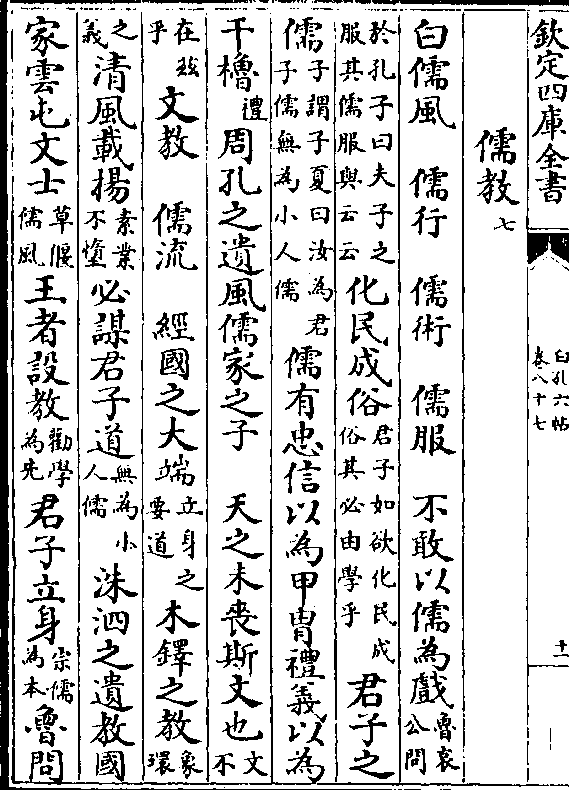 欽定四庫全書
白孔六帖
卷八十七
十一
儒教七
白儒風 儒行 儒術 儒服 不敢以儒為戲魯哀公問
於孔子曰夫子之服其儒服與云云化民成俗君子如欲化民成俗其必由學乎君子之
儒子謂子夏曰汝為君子儒無為小人儒儒有忠信以為甲胄禮義以為
干櫓禮周孔之遺風儒家之子 天之未喪斯文也文不
在茲乎文教 儒流 經國之大端立身之要道木鐸之教象環
之義清風載揚素業不墮必謀君子道無為小人儒洙泗之遺教國
家雲屯文士草偃儒風王者設教勸學為先君子立身宗儒為本魯問